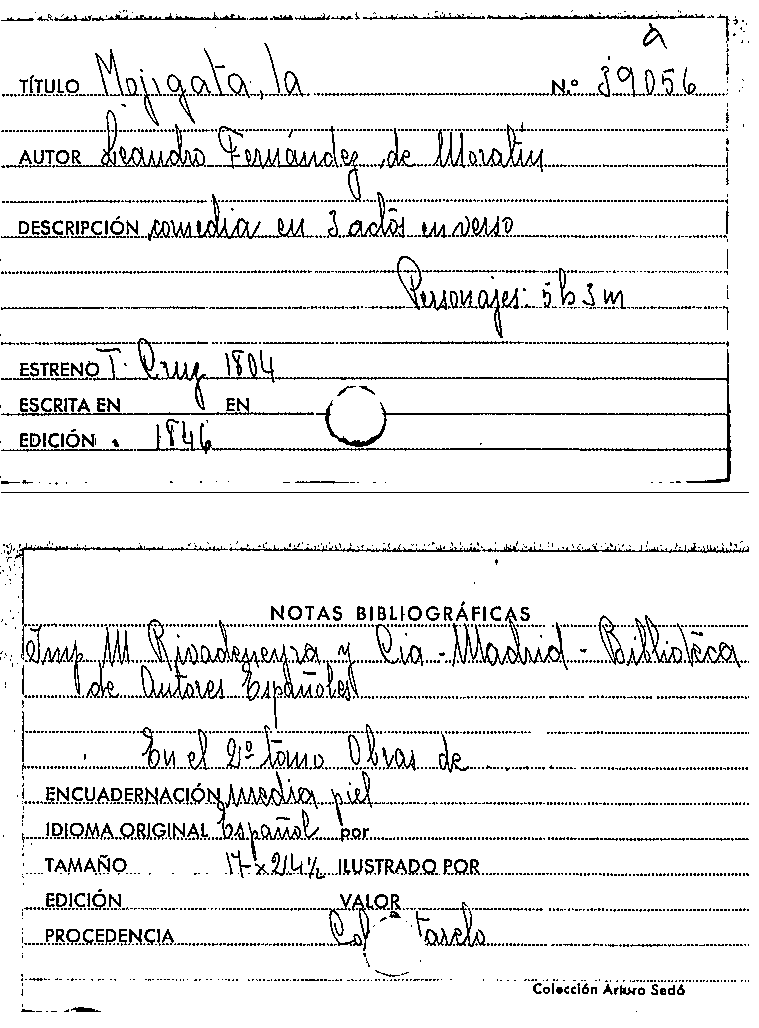 a
TÍTULO Mojigata, la N.º 39056
AUTOR Leandro Fernández de Moratín
DESCRIPCIÓN comedia en 3 actos en verso
Personajes: 5 h 3 m
ESTRENO T. Cruz 1804
ESCRITA EN EN
EDICIÓN . 1846
NOTAS BIBLIOGRÁFICAS
Imp M Rivadeneyra y Cia - Madrid - Biblioteca
de Autores Españoles
En el 2º tomo Obras de
ENCUADERNACIÓN media piel
IDIOMA ORIGINAL Español por
TAMAÑO 17 x 24½ ILUSTRADO POR
EDICIÓN VALOR
PROCEDENCIA Col
Colección Arturo Sedó